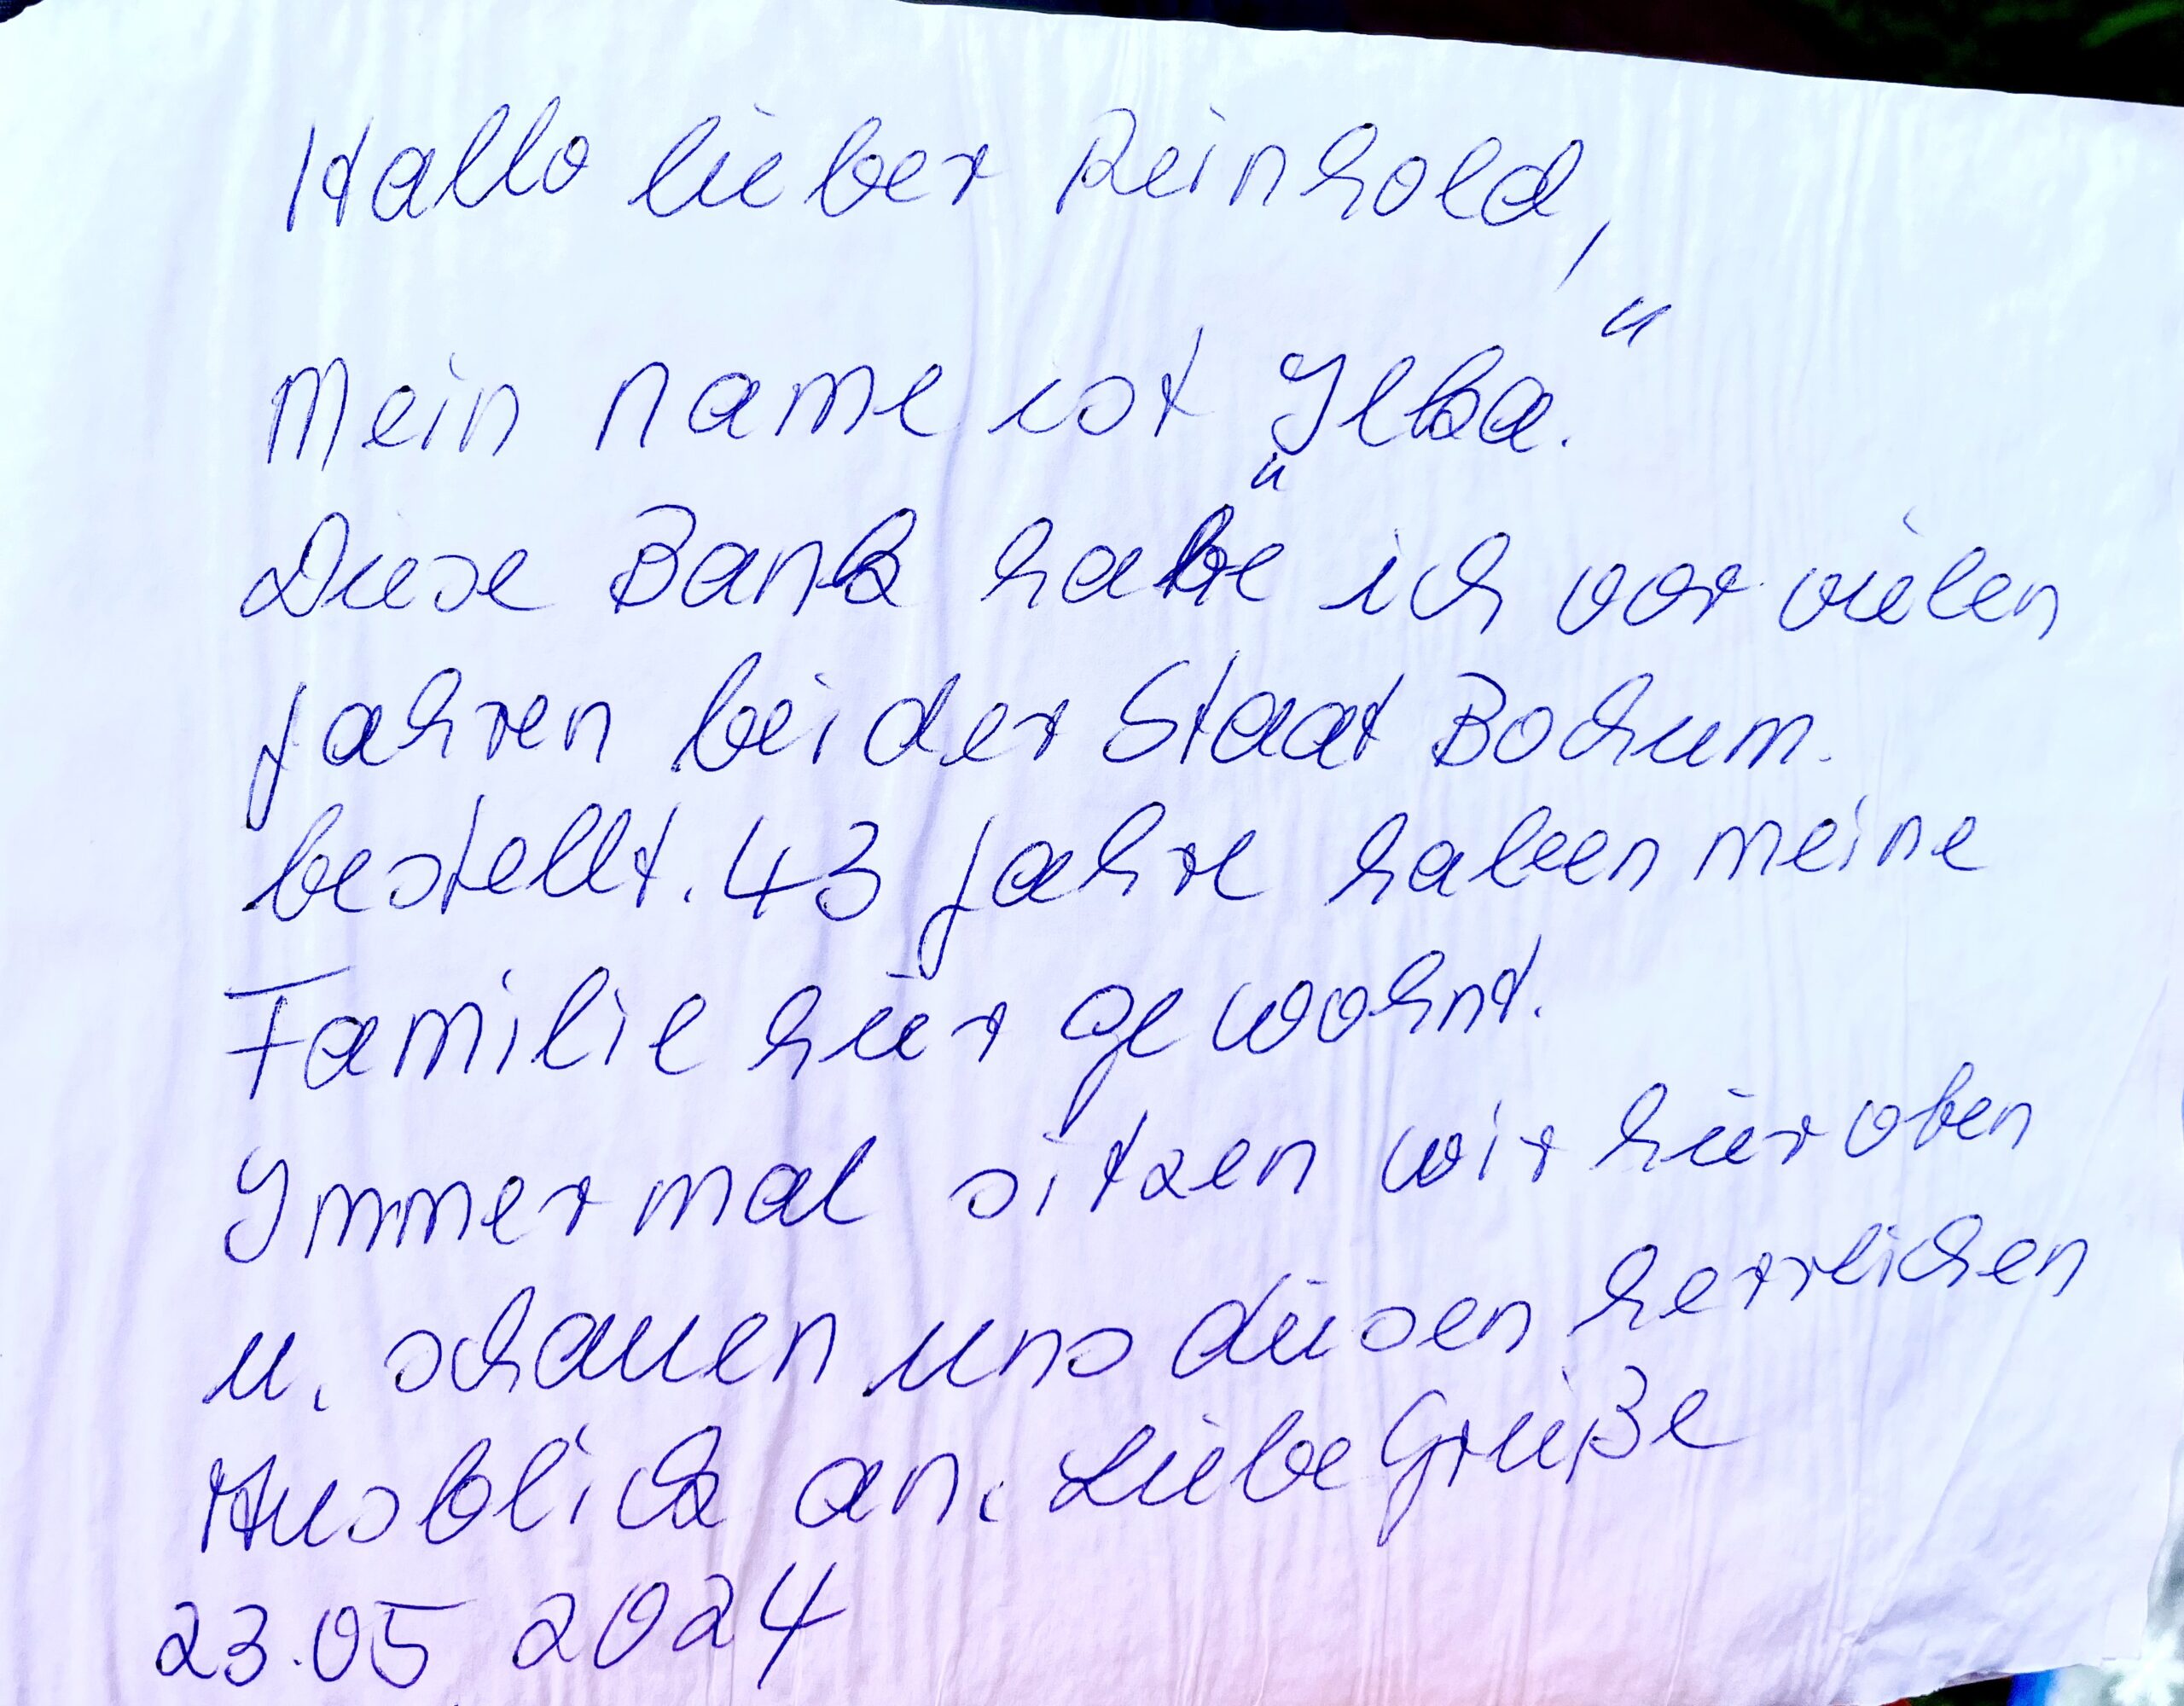 Hallo lieber Reinhold,
Mein name ist "Ilka."
Diese Bank habe ich vor vielen
Jahren bei der Staat Bochum.
bestellt. 43 Jahre haben meine
Familie hier gewohnt.
Immer mal sitzen wir hier oben
u. schauen uns diesen herrlichen
Ausblick an. Liebe Grüße
23.05 2024